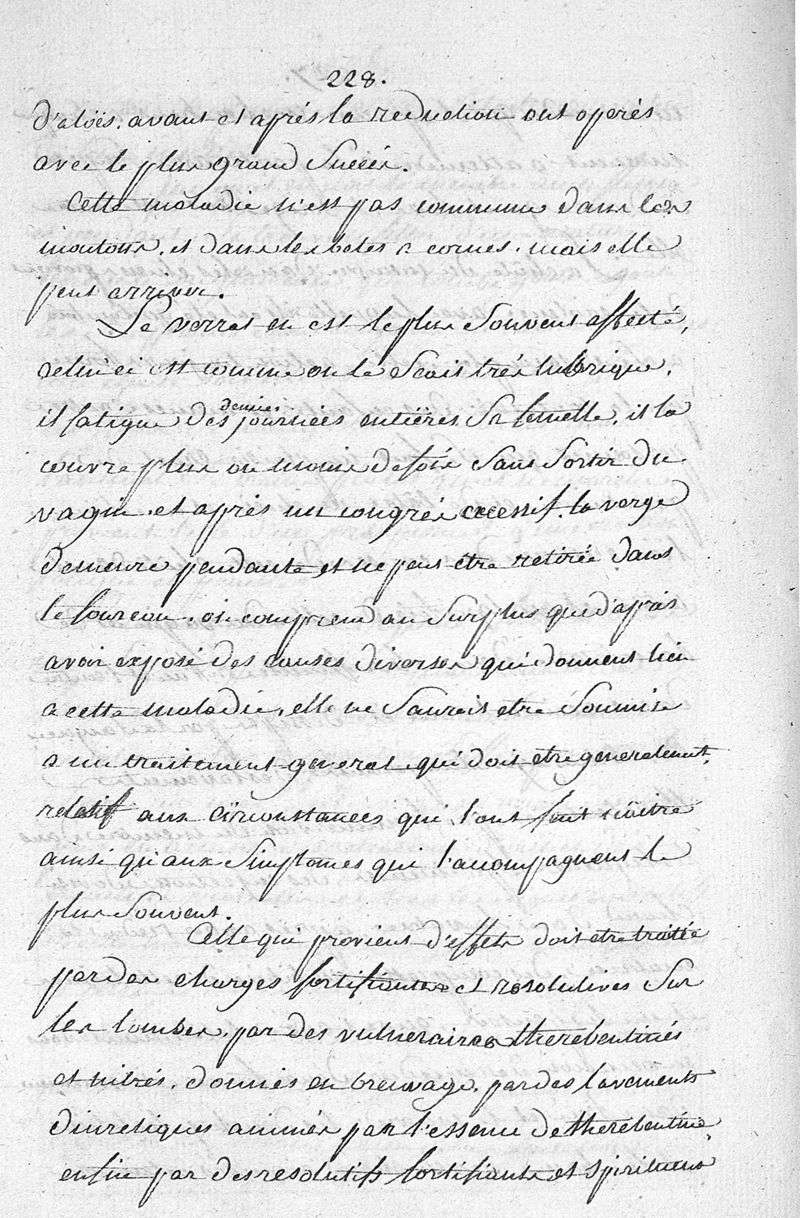 228.
d'aloës. avant et après la reduction ont operés
avec le plus grand Succés.
Cette maladie n'est pas commune dans les
moutons. et dans les betes a cornes. mais elle
peut arriver.
Le verrat en est le plus Souvent affecté,
celui ci est comme on le Scait très lubrique,
il fatigue des demies journées entières Sa femelle, il la
couvre plus ou moins de fois Sans Sortir du
vagin. et après un congrés excessif. la verge
demeure pendante et ne peut être retirée dans
le foureau. on comprend au Surplus que d'après
avoir exposé des causes diverses qui donnent lieu
a cette maladie, elle ne Saurait etre Soumise
a un traitement general qui doit etre generalement,
relatif aux cïrconstances qui l'ont fait naître
ainsi qu'aux Simptomes qui l'accompagnent le
plus Souvent.
Celle qui provient d'efforts doit etre traitée
par des charges fortifiantes et resolutives Sur
les lombes, par des vulneraires therebentinés
et nitrés. donnés en breuvage, par des lavements
diuretiques animés par l'essence de therebentine,
enfin par des resolutifs fortifiants et Spiritueux